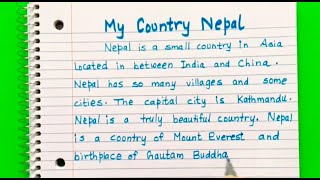 My Country Nepal
Nepal is a small country in Asia
Located in between India and China.
Nepal has so many villages and some
cities. The capital city is Kathmandu.
Nepal is a truly beautiful country. Nepal
is a country of Mount Everest and
birthplace of Gautam Buddha